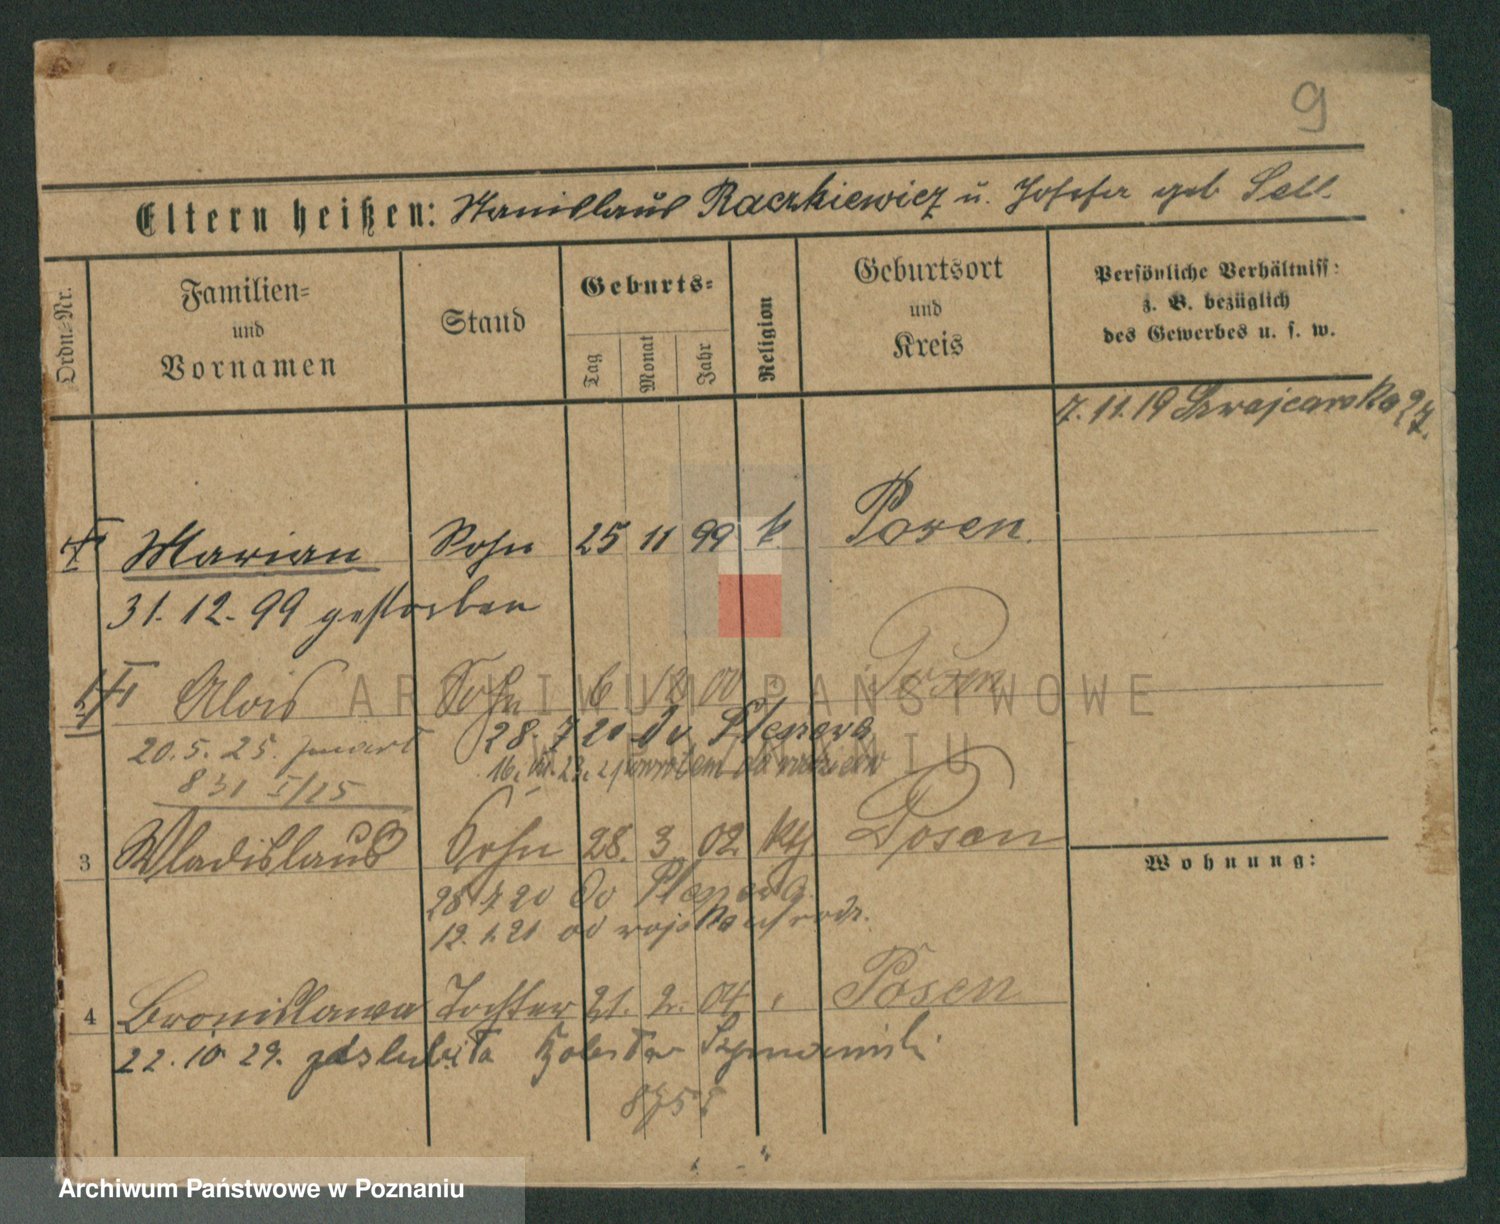 9
Eltern heißen: Stanislaus Raczkiewicz u. Josefa geb Sell.
Ordn=Nr.
Familien=
und
Vornamen
Stand
Geburts=
Tag
Monat
Jahr
Religion
Geburtsort
und
Kreis
Persönliche Verhältniss:
z. B. bezüglich
des Gewerbes u. s. w.
7.11.19 Szwajcarska 27.
Marian Sohn 25 11 99 k Posen.
31.12.99 gestorben
Alois Sohn 6 12 00 Posen
28. 7 20 do
20.5.25. zmarł
831 I/25
3 Wladislaus Sohn 28. 3 02 kth Posen
28 7 20 do
12.1.21 od wojska rodz.
Wohnung:
4 Bronislawa Tochter 21. 2. 04 Posen
22.10 29. zaślubiła
ARCHIWUM PAŃSTWOWE
W POZNANIU
Archiwum Państwowe w Poznaniu